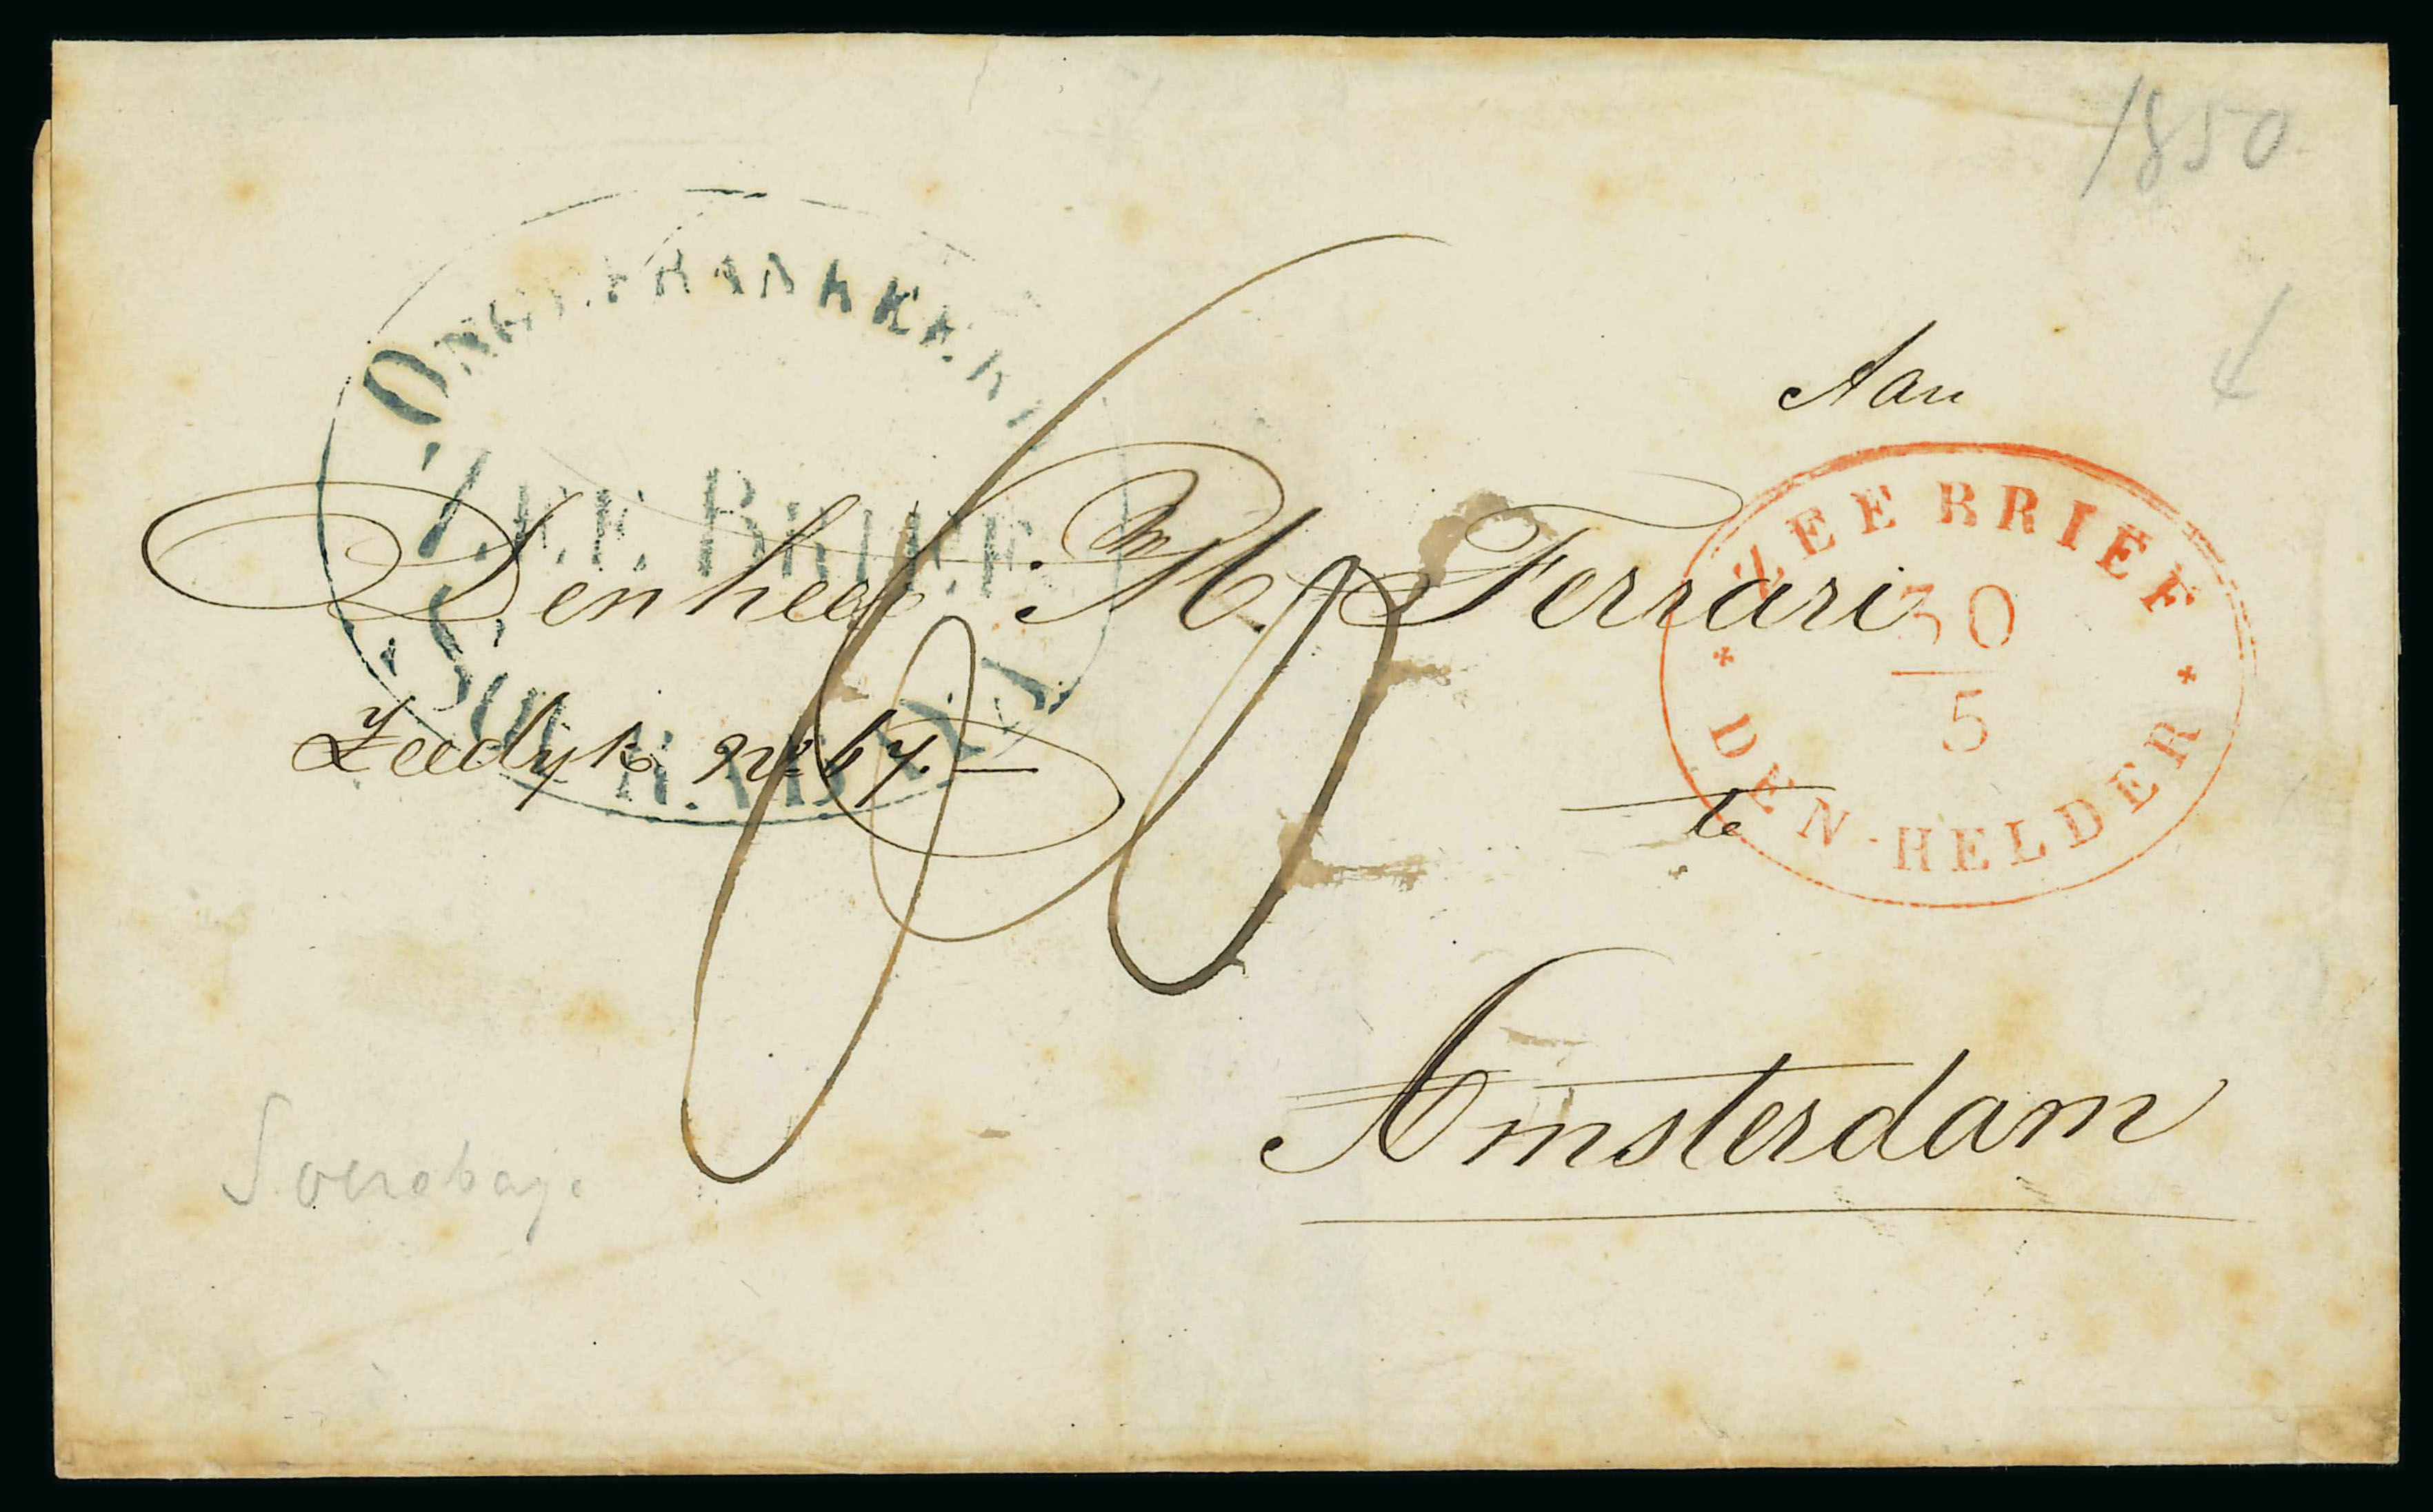 1850
ONGEFRANKEERD
ZEE BRIEF
SOERABAYA
Aan
Den heer M. Ferrari
Zeedyk No 67.
te
Amsterdam
60
ZEE BRIEF
30
5
DEN HELDER
Soerabay.